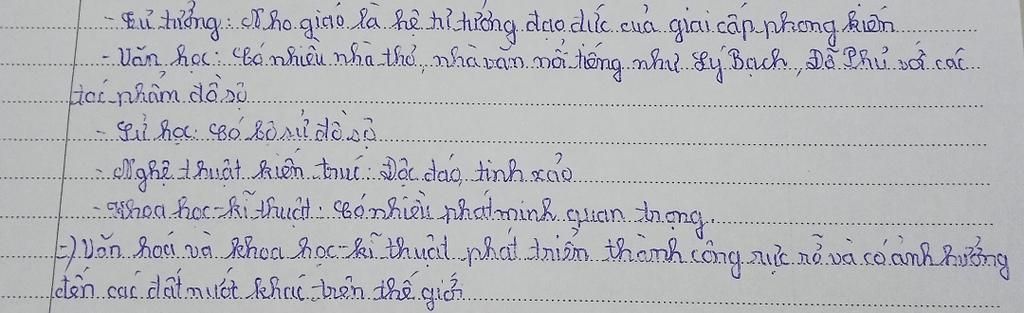 - Tư tưởng: Nho giáo là hệ tư tưởng đạo đức của giai cấp phong kiến
- Văn học: Có nhiều nhà thơ, nhà văn nổi tiếng như Lý Bạch, Đỗ Phủ với các
tác phẩm đồ sộ
- Sử học: Có bộ sử đồ sộ
- Nghệ thuật kiến trúc: Độc đáo, tinh xảo
- Khoa học-kĩ thuật: Có nhiều phát minh quan trọng.
=) Văn hoá và khoa học-kĩ thuật phát triển thành công rực rỡ và có ảnh hưởng
đến các đất nước khác trên thế giới